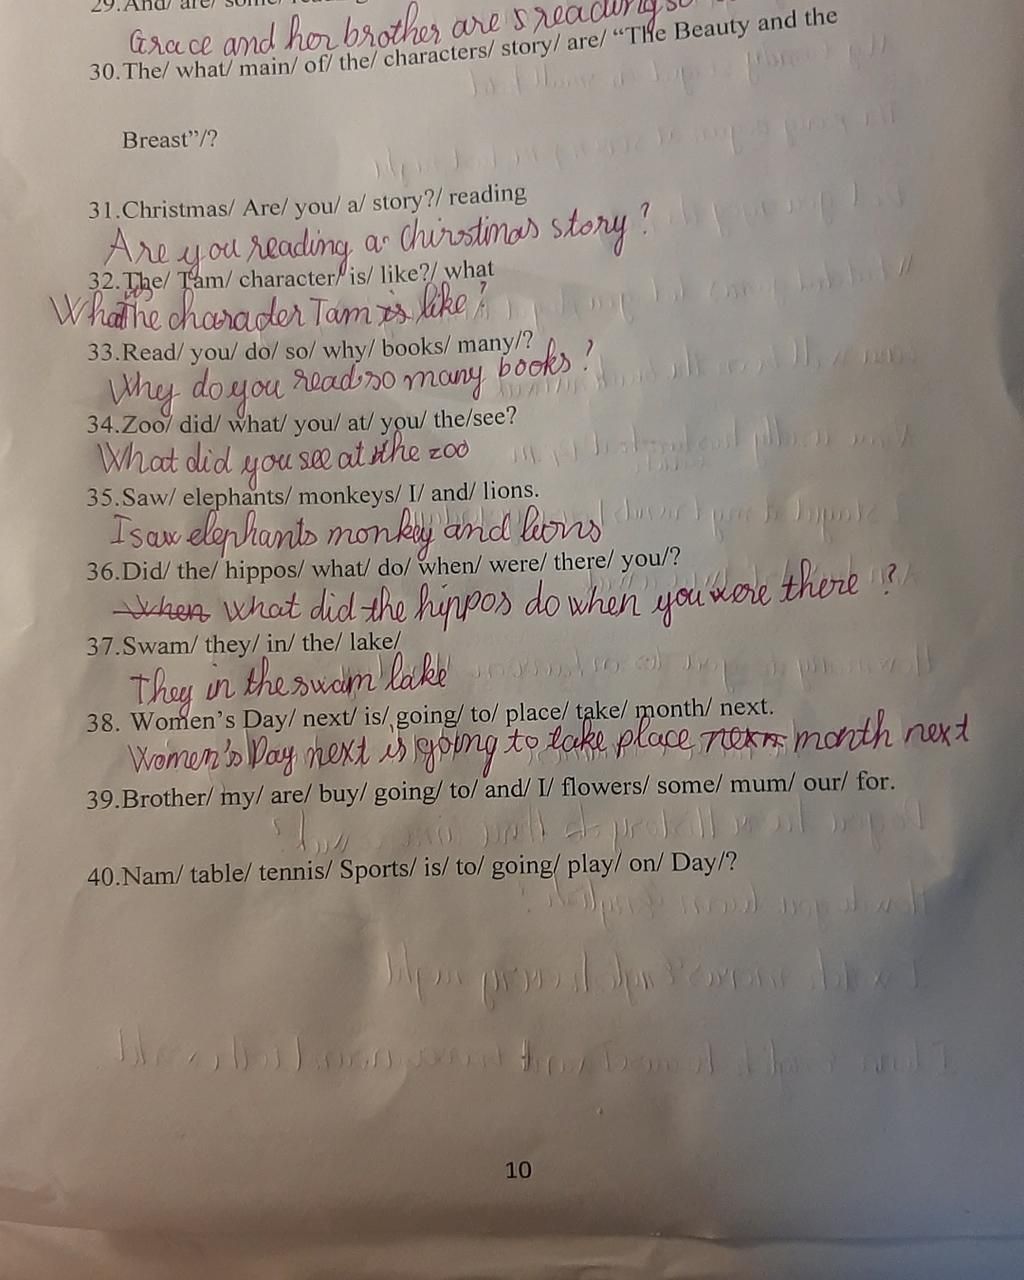 29.And/ are/ some/
Grace and her brother are s reading so
30.The/ what/ main/ of/ the/ characters/ story/ are/ “The Beauty and the
Breast”/?
31.Christmas/ Are/ you/ a/ story?/ reading
Are you reading a Chirstimas story ?
32.The/ Tam/ character/ is/ like?/ what
is
What The charader Tam is like ?
33.Read/ you/ do/ so/ why/ books/ many/?
Why do you read so many books ?
34.Zoo/ did/ what/ you/ at/ you/ the/see?
What did you see at the zoo
35.Saw/ elephants/ monkeys/ I/ and/ lions.
I saw elephants monkey and lions
36.Did/ the/ hippos/ what/ do/ when/ were/ there/ you/?
When What did the hippos do when you were there ?
37.Swam/ they/ in/ the/ lake/
They in the swam lake
38. Women’s Day/ next/ is/ going/ to/ place/ take/ month/ next.
Women's Day next is going to take place next month next
39.Brother/ my/ are/ buy/ going/ to/ and/ I/ flowers/ some/ mum/ our/ for.
40.Nam/ table/ tennis/ Sports/ is/ to/ going/ play/ on/ Day/?
10